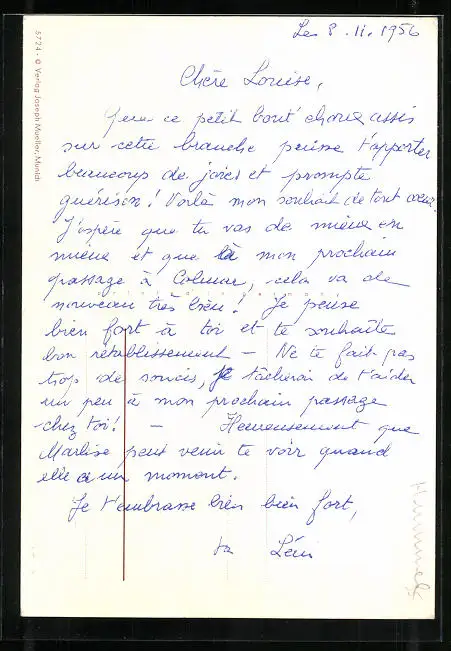 Le 8.11.1956
Chère Louise,
Que ce petit bout' chou assis
sur cette branche puisse t'apporter
beaucoup de joies et prompte
guérison! Voilà mon souhait de tout cœur.
J'espère que tu vas de mieux en
mieux et que là mon prochain
passage à Colmar, cela va de
nouveau très bien! Je pense
bien fort à toi et te souhaite
bon rétablissement – Ne te fait pas
trop de soucis, je tâcherai de t'aider
un peu à mon prochain passage
chez toi! – Heureusement que
Marlise peut venir te voir quand
elle a un moment.
Je t'embrasse bien bien fort,
ta Léni
5724 · © Verlag Joseph Mueller, Munich
Hummel